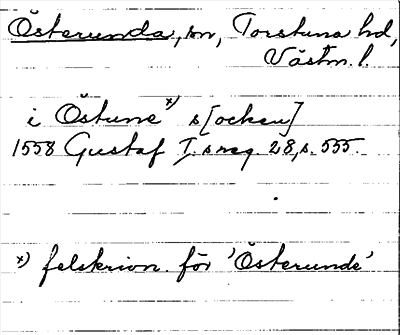 Österunda, sn, Torstuna hd,
Västm. l.
i Östune x) s[ocken]
1558 Gustaf I:s reg. 28, s. 555.
x) felskrivn. för 'Österunde'